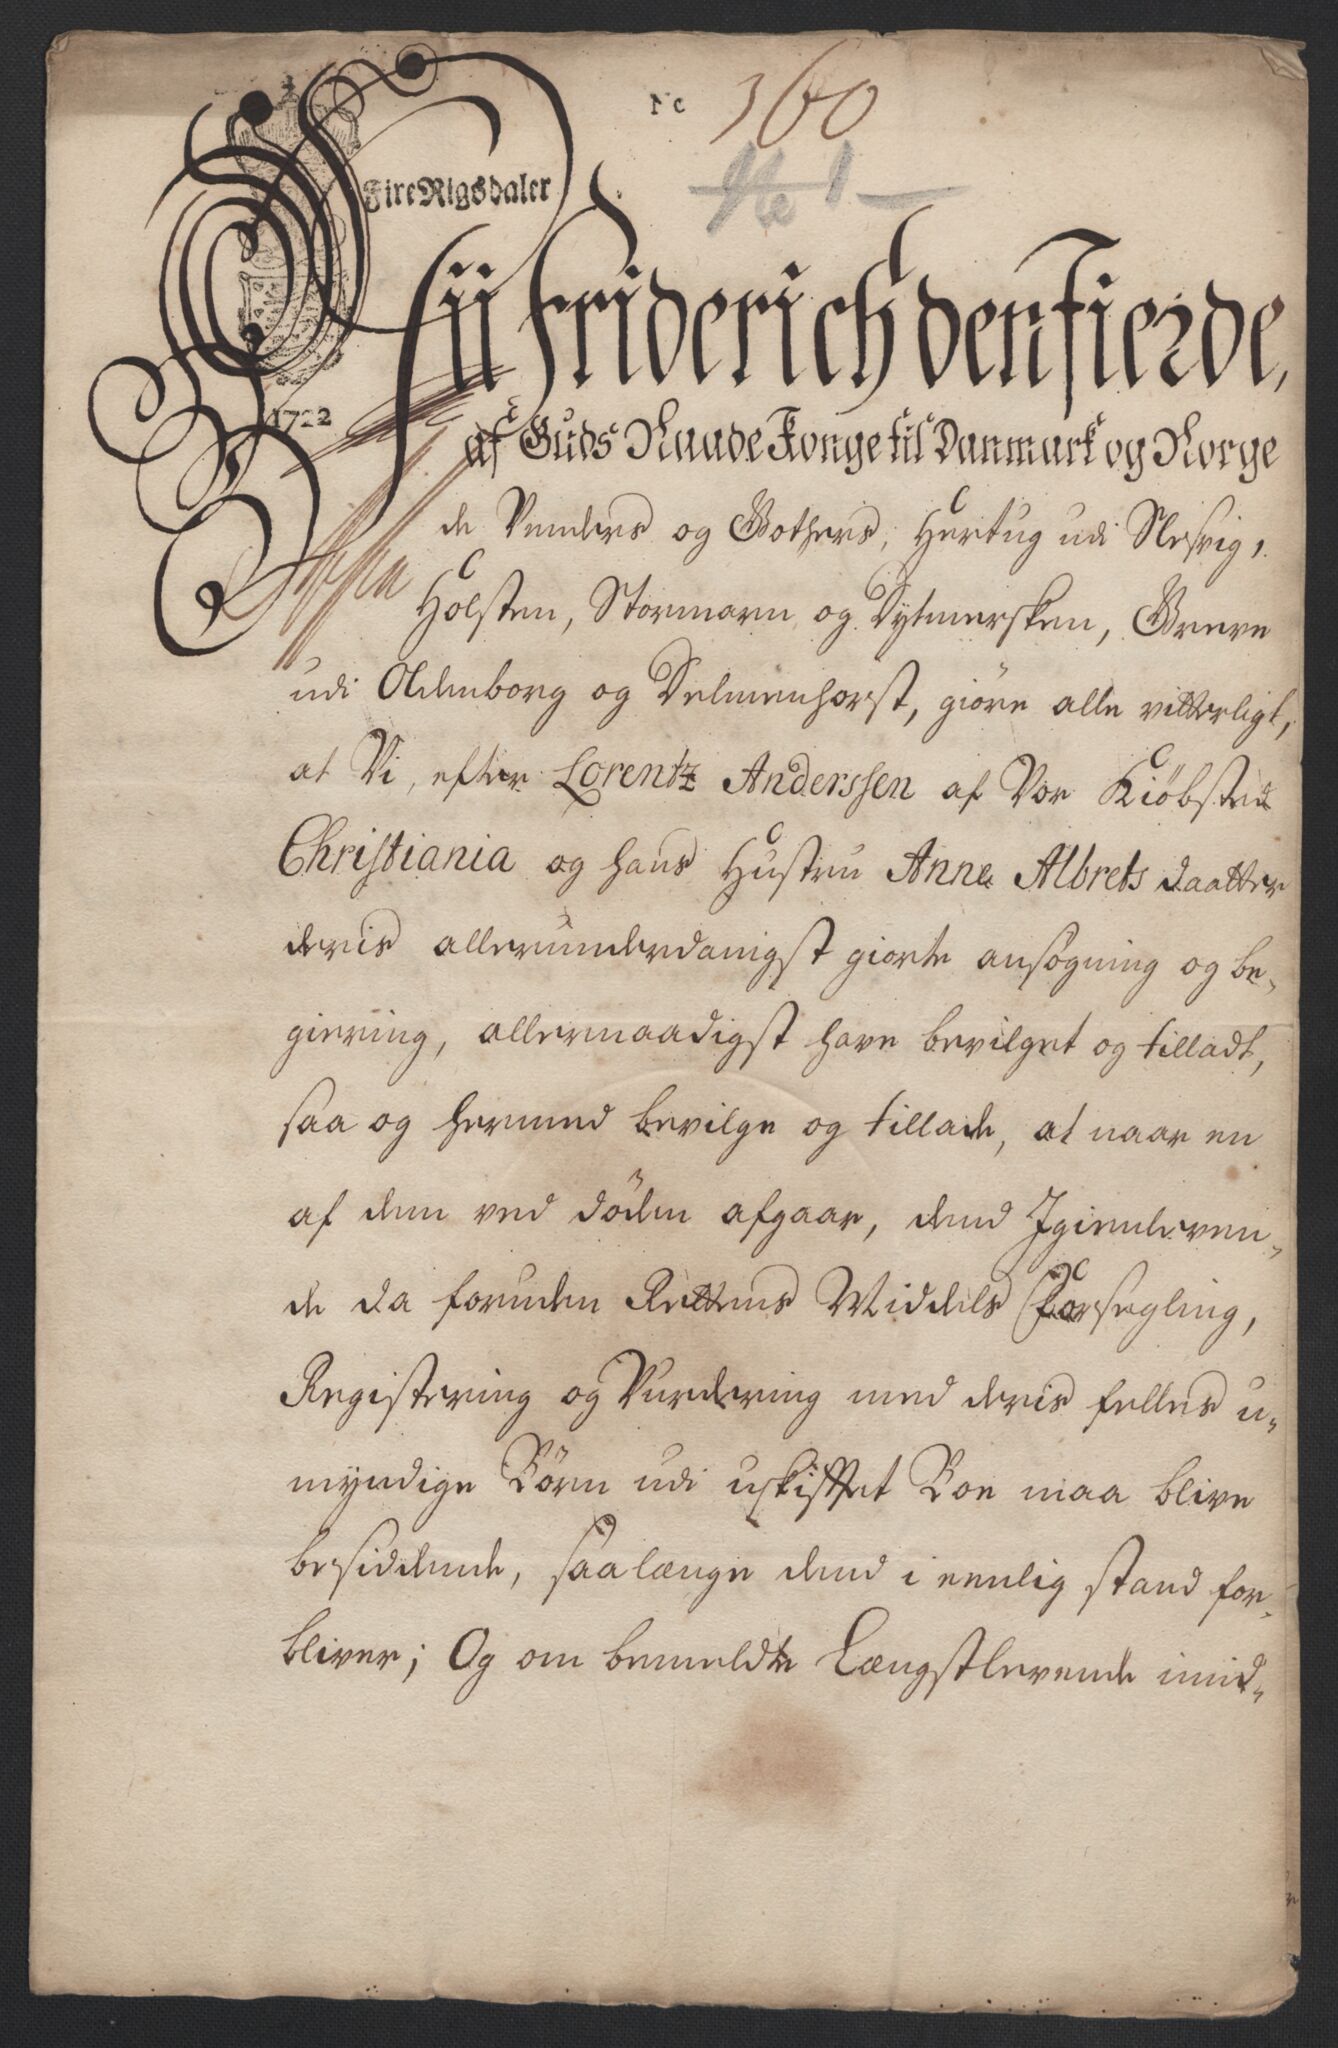 No 360
No 1
Fire Rigsdaler
Wii Friderich den Fierde,
1722
af Guds Naade Konge til Danmark og Norge
de Venders og Gothers, Hertug udi Slesvig,
Holsten, Stormarn og Dytmersken, Greve
udi Oldenborg og Delmenhorst, giøre alle vitterligt,
at Vi, efter Lorentz Anderssen af Vor Kiøbsted
Christiania og hans Hustru Anne Albrets daatter
deris allerunderdanigst giorte ansøgning og be-
giering, allernaadigst have bevilget og tilladt,
saa og hermed bevilge og tillade, at naar en
af dem ved døden afgaar, dend Igienleven-
de da foruden Rettens Middels Forsegling,
Registering og Vurdering med deris felles u-
myndige Børn udi uskifftet Boe maa blive
besiddende, saalænge dend i eenlig stand for-
bliver; Og om bemeldte Længstlevende imid-